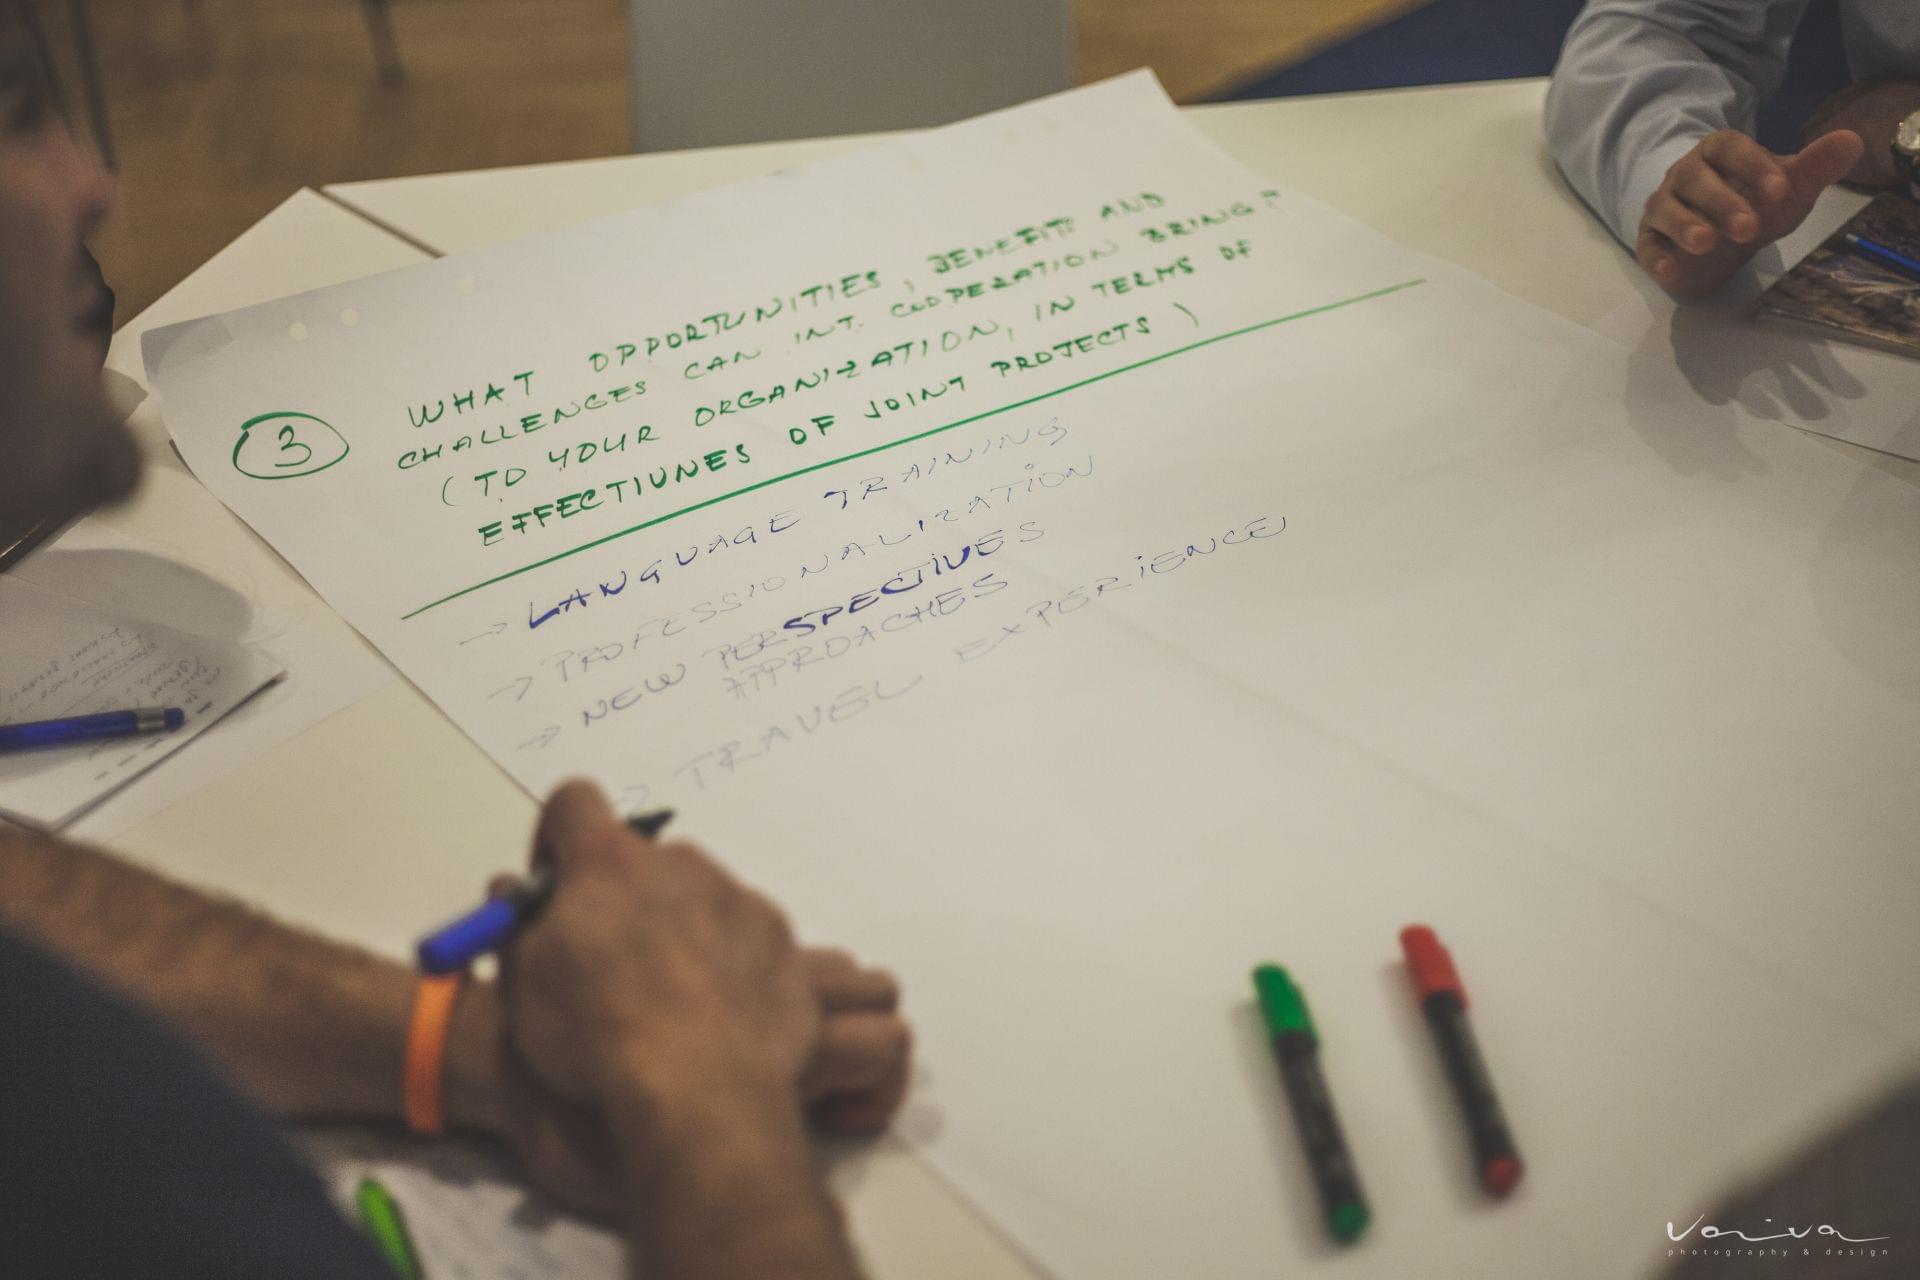 3
WHAT OPPORTUNITIES, BENEFITS AND
CHALLENGES CAN INT. COOPERATION BRING?
(TO YOUR ORGANIZATION, IN TERMS OF
EFFECTIVNES OF JOINT PROJECTS)
→ LANGUAGE TRAINING
→ PROFESSIONALIZATION
→ NEW PERSPECTIVES
APPROACHES
→ TRAVEL EXPERIENCE
photography & design